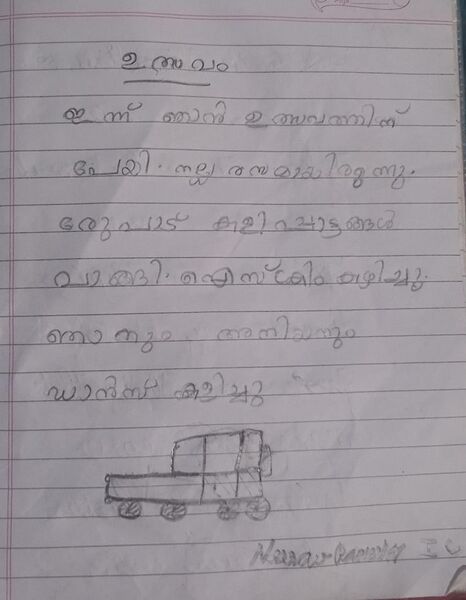 ഉത്സവം
ഇന്ന് ഞാൻ ഉത്സവത്തിന്
പേയി. നല്ല രസമായിരുന്നു.
ഒരുപാട് കളിപ്പാട്ടങ്ങൾ
വാങ്ങി. ഐസ്ക്രിം കഴിച്ചു.
ഞാനും അനിയനും
ഡാൻസ് കളിച്ചു